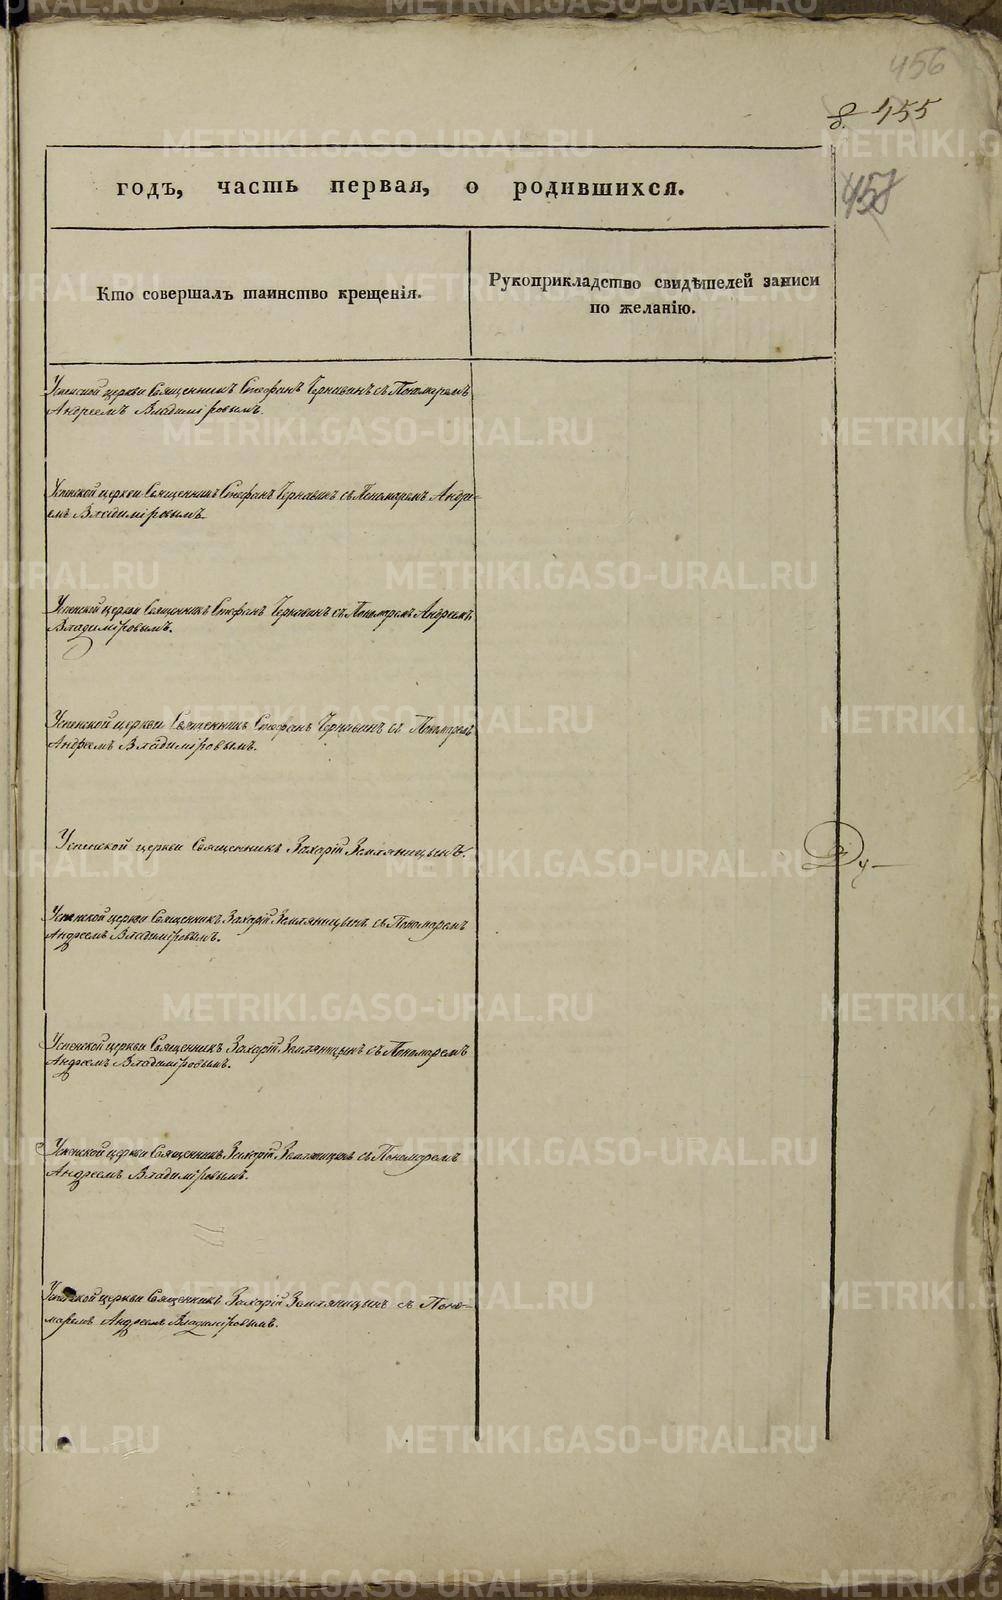 456
8. 455
458
годъ, часть первая, о родившихся.
Кто совершалъ таинство крещенія.
Рукоприкладство свидѣтелей записи
по желанію.
Успенской церкви Священникъ Стефанъ Чернавинъ съ Пономаремъ
Андреемъ Владиміровымъ.
Успенской церкви Священникъ Стефанъ Чернавинъ съ Пономаремъ Андре-
емъ Владиміровымъ.
Успенской церкви Священникъ Стефанъ Чернавинъ съ Пономаремъ Андреемъ
Владиміровымъ.
Успенской церкви Священникъ Стефанъ Чернавинъ съ Пономаремъ
Андреемъ Владиміровымъ.
Успенской церкви Священникъ Захарій Земляницынъ.
Успенской церкви Священникъ Захарій Земляницынъ съ Пономаремъ
Андреемъ Владиміровымъ.
Успенской церкви Священникъ Захарій Земляницынъ съ Пономаремъ
Андреемъ Владиміровымъ.
Успенской церкви Священникъ Захарій Земляницынъ съ Пономаремъ
Андреемъ Владиміровымъ.
Успенской церкви Священникъ Захарій Земляницынъ съ Поно-
маремъ Андреемъ Владиміровымъ.
METRIKI.GASO-URAL.RU